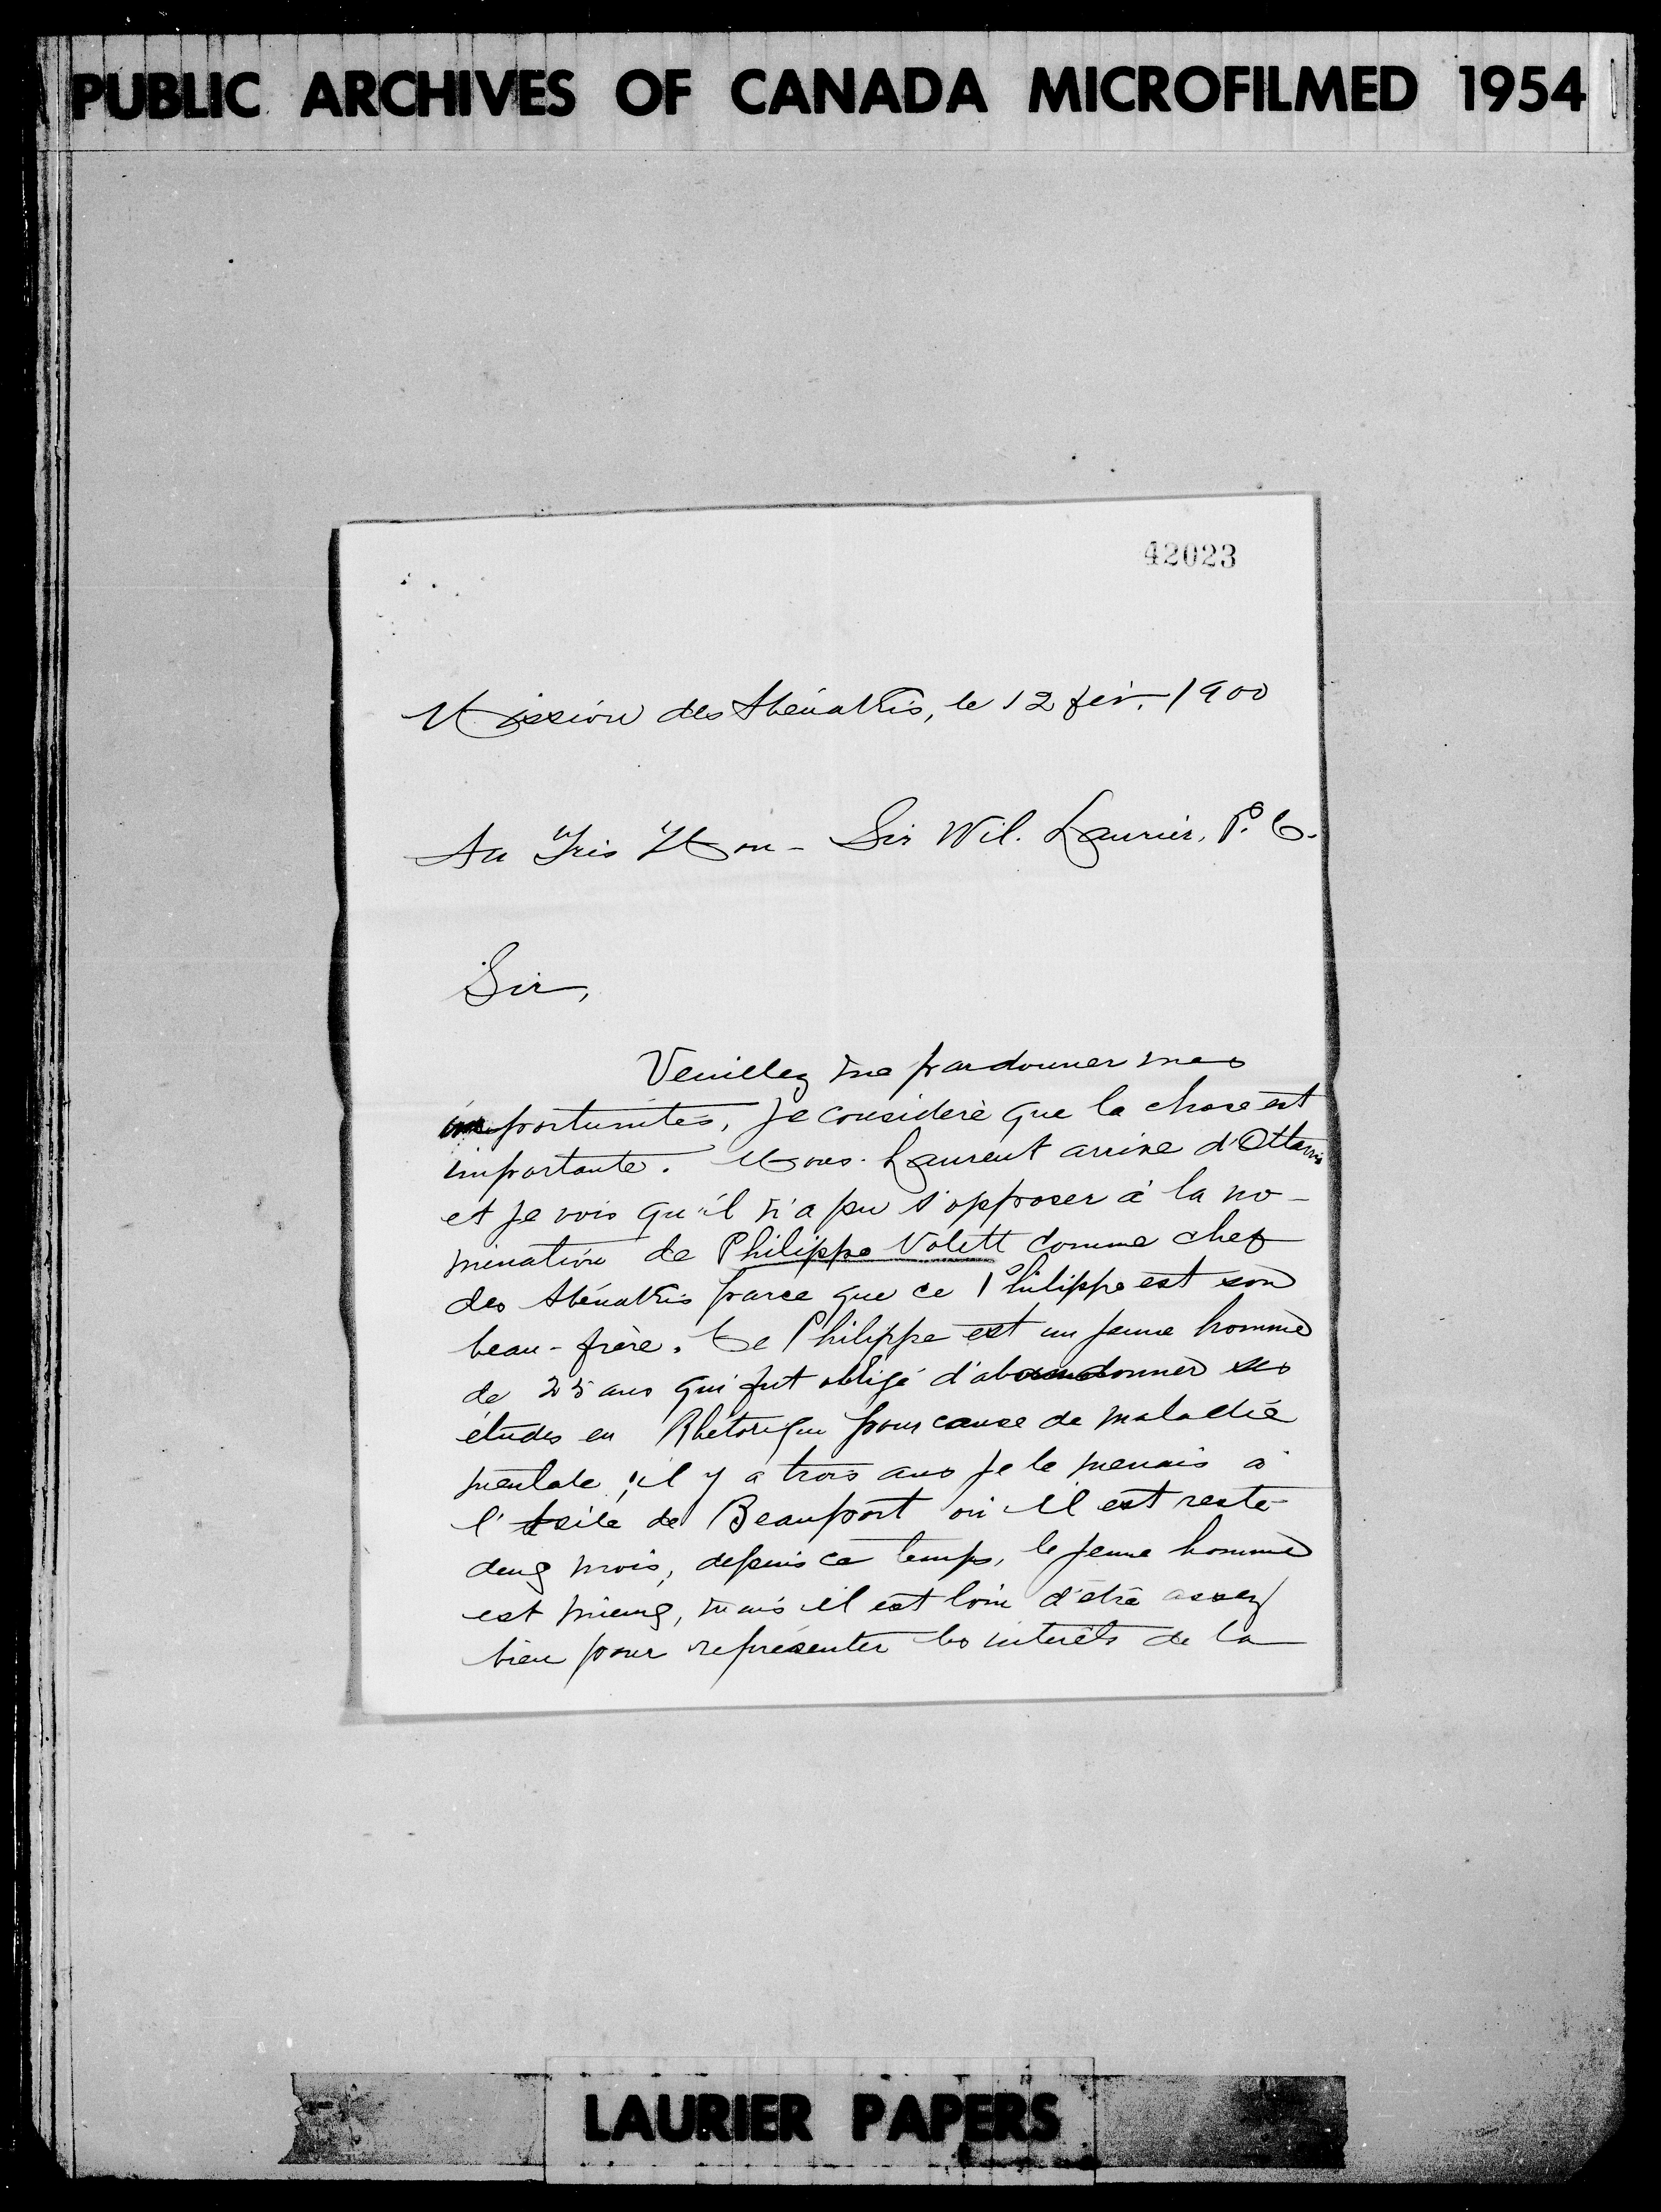 PUBLIC ARCHIVES OF CANADA MICROFILMED 1954
42023
Mission des Abénakis, le 12 fév. 1900
Au Très Hon- Sir Wil. Laurier, P. C.
Sir,
Veuillez me pardonner mes
importunités, je considère que la chose est
importante. Mons. Laurent arrive d'Ottawa
et je vois qu'il n'a pu s'opposer à la no-
mination de Philippe Volett comme chef
des Abénakis parce que ce Philippe est son
beau-frère. Ce Philippe est un jeune homme
de 25 ans qui fut obligé d'abandonner ses
études en Rhétorique pour cause de maladie
mentale ; il y a trois ans je le menais à
l'Asile de Beauport où il est resté
deux mois, depuis ce temps, le jeune homme
est mieux, mais il est loin d'être assez
bien pour représenter les intérêts de la
LAURIER PAPERS